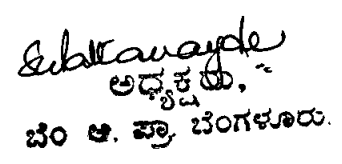 ಅಧ್ಯಕ್ಷರು,
ಬೆಂ ಅ. ಪ್ರಾ ಬೆಂಗಳೂರು.